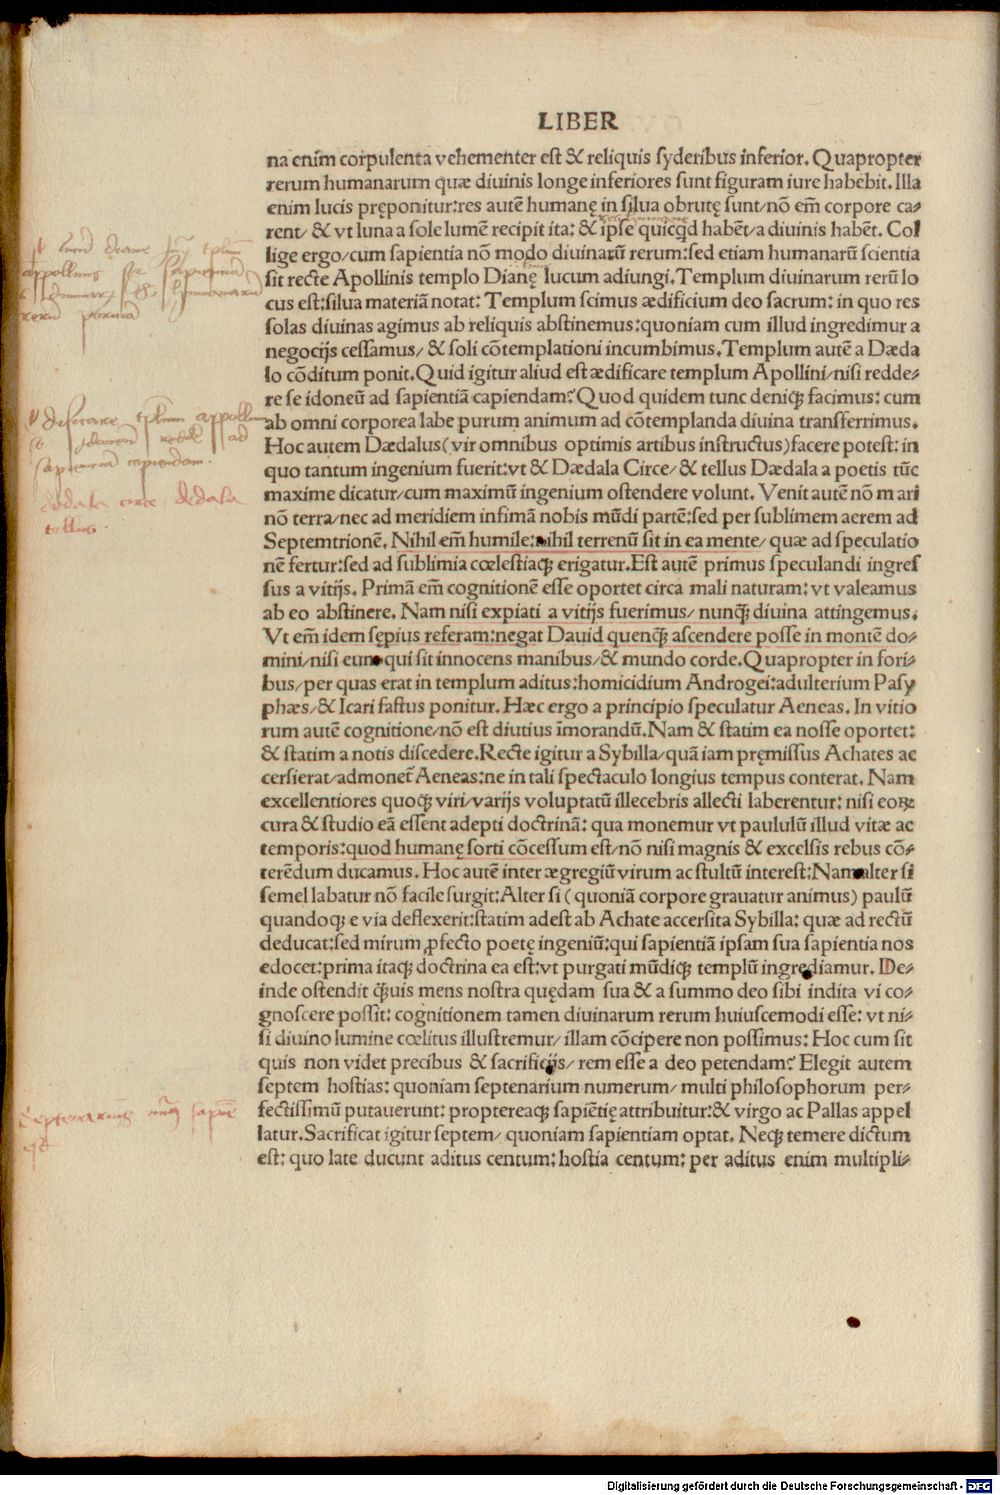 LIBER
na enim corpulenta vehementer est & reliquis ſyderibus inferior. Quapropter
rerum humanarum quæ diuinis longe inferiores ſunt figuram iure habebit. Illa
enim lucis pręponitur: res autē humanę in ſilua obrutę sunt/ nō em̄ corpore ca-
rent/ & vt luna a ſole lumē recipit ita: & ipſe quicꝗd habēt/ a diuinis habēt. Col
lige ergo/ cum ſapientia nō modo diuinarū rerum: ſed etiam humanarū ſcientia
ſit recte Apollinis templo Dianę lucum adiungi. Templum diuinarum rerū lo
cus est: ſilua materiā notat: Templum ſcimus ædificium deo ſacrum: in quo res
ſolas diuinas agimus ab reliquis abſtinemus: quoniam cum illud ingredimur a
negocijs ceſſamus/ & ſoli cōtemplationi incumbimus. Templum autē a Dæda
lo cōditum ponit. Quid igitur aliud est ædificare templum Apollini/ niſi redde-
re ſe idoneū ad ſapientiā capiendam? Quod quidem tunc deniqꝫ facimus: cum
ab omni corporea labe purum animum ad cōtemplanda diuina tranſferrimus.
Hoc autem Dædalus (vir omnibus optimis artibus instructus) facere potest: in
quo tantum ingenium fuerit: vt & Dædala Circe/ & tellus Dædala a poetis tūc
maxime dicatur/ cum maximū ingenium ostendere volunt. Venit autē nō mari
nō terra/ nec ad meridiem infimā nobis mūdi partē: ſed per ſublimem aerem ad
Septemtrionē. Nihil em̄ humile: nihil terrenū ſit in ea mente/ quæ ad ſpeculatio
nē fertur: ſed ad ſublimia cœlestiaqꝫ erigatur. Est autē primus ſpeculandi ingreſ
ſus a vitijs. Primā em̄ cognitionē eſſe oportet circa mali naturam: vt valeamus
ab eo abſtinere. Nam niſi expiati a vitijs fuerimus/ nunqꝫ diuina attingemus.
Vt em̄ idem ſępius referam: negat Dauid quenqꝫ aſcendere poſſe in montē do-
mini/ niſi eum qui ſit innocens manibus/ & mundo corde. Quapropter in fori-
bus/ per quas erat in templum aditus: homicidium Androgei: adulterium Paſy
phæs/ & Icari faſtus ponitur. Hæc ergo a principio ſpeculatur Aeneas. In vitio
rum autē cognitione/ nō est diutius īmorandū. Nam & statim ea noſſe oportet:
& statim a notis diſcedere. Recte igitur a Sybilla/ quā iam pręmiſſus Achates ac
cerſierat/ admonet̄ Aeneas: ne in tali ſpectaculo longius tempus conterat. Nam
excellentiores quoqꝫ viri/ varijs voluptatū illecebris allecti laberentur: niſi eoꝝ
cura & studio eā eſſent adepti doctrinā: qua monemur vt paululū illud vitæ ac
temporis: quod humanę ſorti cōceſſum est/ nō niſi magnis & excelſis rebus cō-
terēdum ducamus. Hoc autē inter ægregiū virum ac stultū interest: Nam alter ſi
ſemel labatur nō facile ſurgit: Alter ſi (quoniā corpore grauatur animus) paulū
quandoqꝫ e via deflexerit: statim adest ab Achate accerſita Sybilla: quæ ad rectū
deducat: ſed mirum ꝓfecto poetę ingeniū: qui ſapientiā ipſam ſua ſapientia nos
edocet: prima itaqꝫ doctrina ea est: vt purgati mūdiqꝫ templū ingrediamur. De-
inde ostendit qꝫuis mens nostra quędam ſua & a ſummo deo ſibi indita vi co-
gnoſcere poſſit: cognitionem tamen diuinarum rerum huiuſcemodi eſſe: vt ni-
ſi diuino lumine cœlitus illustremur/ illam cōcipere non poſſimus: Hoc cum ſit
quis non videt precibus & ſacrificijs/ rem eſſe a deo petendam? Elegit autem
ſeptem hostias: quoniam ſeptenarium numerum/ multi philoſophorum per-
fectiſſimū putauerunt: proptereaqꝫ ſapiētię attribuitur: & virgo ac Pallas appel
latur. Sacrificat igitur ſeptem/ quoniam ſapientiam optat. Neqꝫ temere dictum
est: quo late ducunt aditus centum: hostia centum: per aditus enim multipli-
dedala circe dedala
tellus
Digitalisierung gefördert durch die Deutsche Forschungsgemeinschaft - DFG